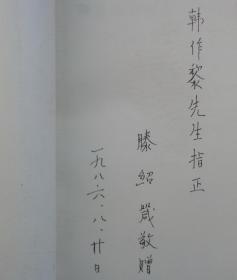 韩作黎先生指正
滕绍箴敬赠
一九八六.八.廿日